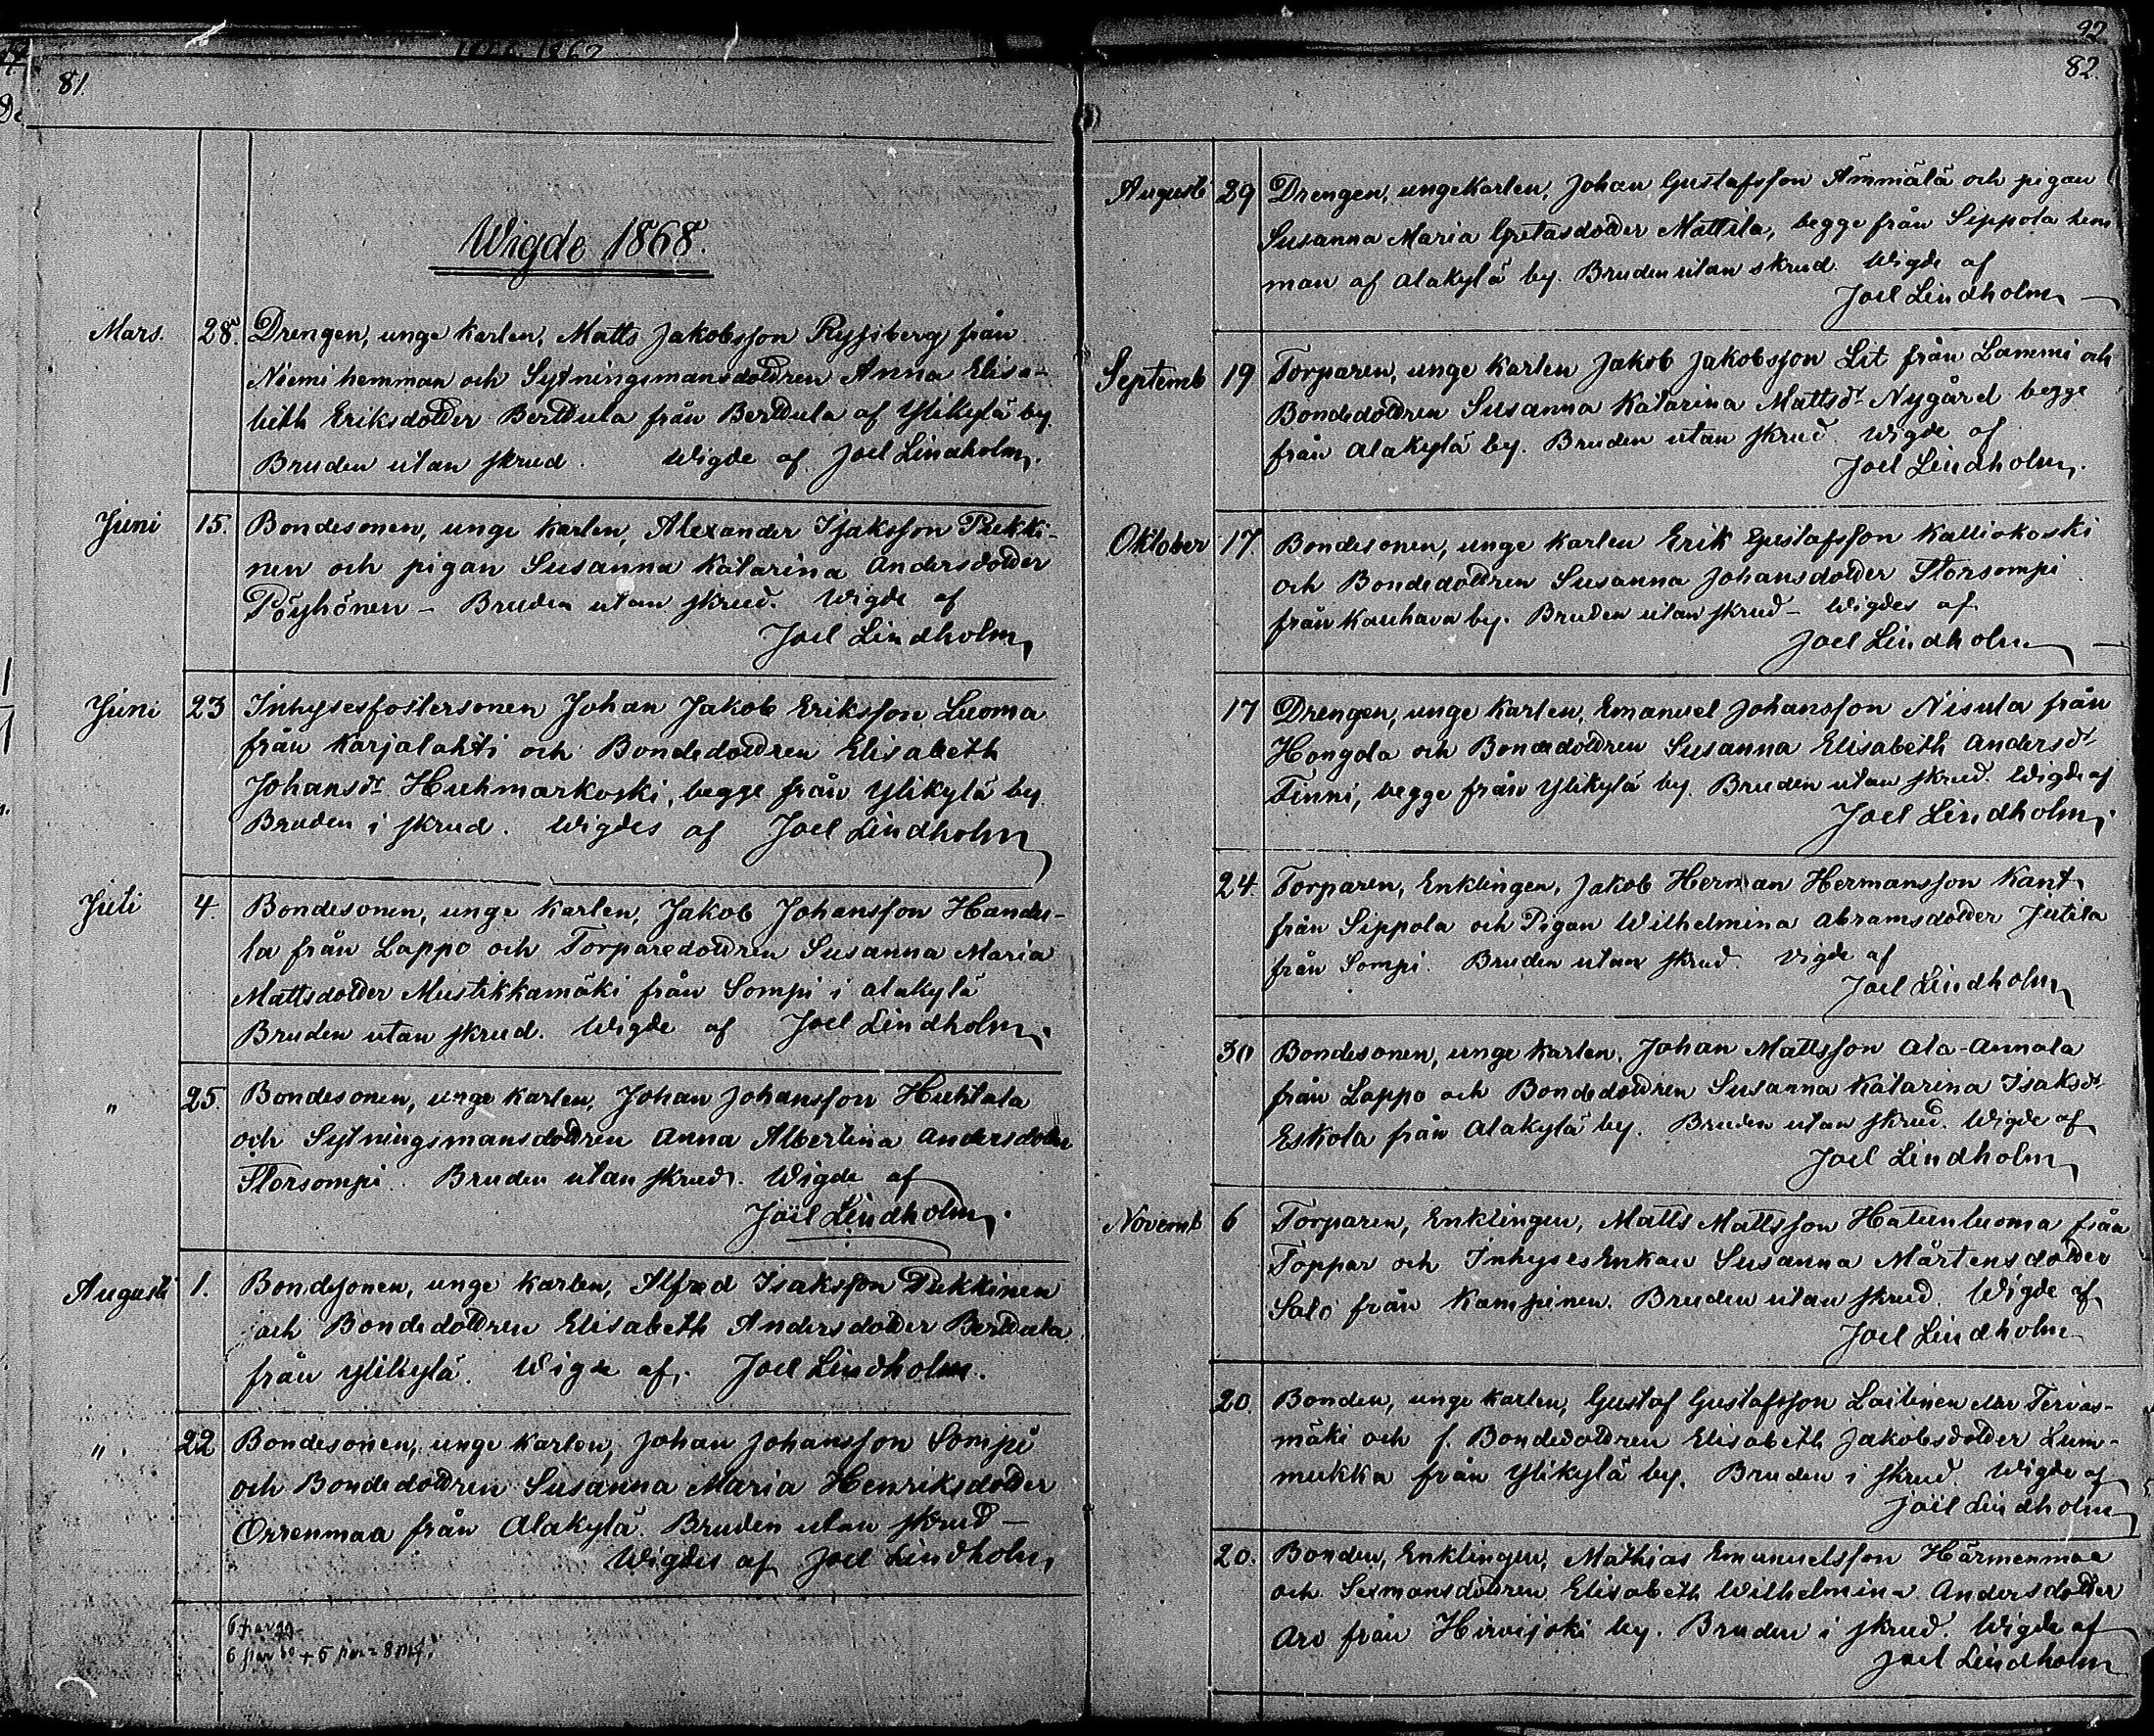 81.
Wigde 1868.
Mars. 28. Drengen, unge karlen, Matts Jakobsson Ryssberg från
Niemi hemman och Sytningsmansdottren Anna Elisa-
beth Eriksdotter Berttula från Berttula af Ylikylä by.
Bruden utan skrud. Wigde af Joel Lindholm.
Juni 15. Bondesonen, unge karlen, Alexander Isaksson Pukki-
nen och pigan Susanna Katarina Andersdotter
Pöyhönen – Bruden utan skrud. Wigde af
Joel Lindholm
Juni 23 Inhysesfostersonen Johan Jakob Eriksson Luoma
från Karjalahti och Bondedottren Elisabeth
Johansdr Huhmarkoski, begge från Ylikylä by
Bruden i skrud. Wigdes af Joel Lindholm
Juli 4. Bondesonen, unge karlen, Jakob Johansson Handu-
la från Lappo och Torparedottren Susanna Maria
Mattsdotter Mustikkamäki från Sompi i Alakylä
Bruden utan skrud. Wigde af Joel Lindholm.
" 25. Bondesonen, unge karlen, Johan Johansson Huhtala
och Sytningsmansdottren Anna Albertina Andersdotter
Storsompi. Bruden utan skrud. Wigde af
Joël Lindholm.
Augusti 1. Bondesonen, unge karlen, Alfred Isaksson Pukkinen
och Bondedottren Elisabeth Andersdotter Berttula
från Ylikylä. Wigde af. Joel Lindholm.
" 22 Bondesonen, unge karlen, Johan Johansson Sompi
och Bondedottren Susanna Maria Henriksdotter
Orrenmaa från Alakylä. Bruden utan skrud –
Wigdes af Joel Lindholm
6 par
6 par + 5 par
92
82.
Augusti 29 Drengen, unge karlen, Johan Gustafsson Ämmälä och pigan
Susanna Maria Gretasdotter Mattila, begge från Sippola hem
man af Alakylä by. Bruden utan skrud. Wigde af
Joel Lindholm
Septemb 19 Torparen, unge karlen Jakob Jakobsson Lit från Lammi och
Bondedottren Susanna Katarina Mattsdr Nygård begge
från Alakylä by. Bruden utan skrud. Wigde af
Joel Lindholm.
Oktober 17. Bondesonen, unge karlen Erik Gustafsson Kalliokoski
och Bondedottren Susanna Johansdotter Storsompi
från Kauhava by. Bruden utan skrud – Wigdes af
Joel Lindholm
17 Drengen, unge karlen, Emanuel Johansson Nisula från
Hongola och Bondedottren Susanna Elisabeth Andersdr
Finni, begge från Ylikylä by. Bruden utan skrud. Wigde af
Joel Lindholm.
24 Torparen, Enklingen, Jakob Herman Hermansson Kant
från Sippola och Pigan Wilhelmina Abramsdotter Jutila
från Sompi. Bruden utan skrud Vigde af
Joel Lindholm
30 Bondesonen, unge karlen, Johan Mattsson Ala-Annala
från Lappo och Bondedottren Susanna Katarina Isaksdr
Eskola från Alakylä by. Bruden utan skrud. Wigde af
Joel Lindholm
Novemb 6 Torparen, Enklingen, Matts Mattsson Hatunluoma från
Toppar och Inhysesenkan Susanna Mårtensdotter
Salo från Kampinen. Bruden utan skrud. Wigde af
Joel Lindholm
20. Bonden, unge karlen, Gustaf Gustafsson Laitinen eller Tervas-
mäki och f. Bondedottren Elisabeth Jakobsdotter Lum-
mukka från Ylikylä by. Bruden i skrud. Wigde af
Joël Lindholm
20. Bonden, Enklingen, Mathias Emanuelsson Härmenmaa
och Sexmansdottren Elisabeth Wilhelmina Andersdotter
Aro från Hirvijoki by. Bruden i skrud. Wigde af
Joel Lindholm